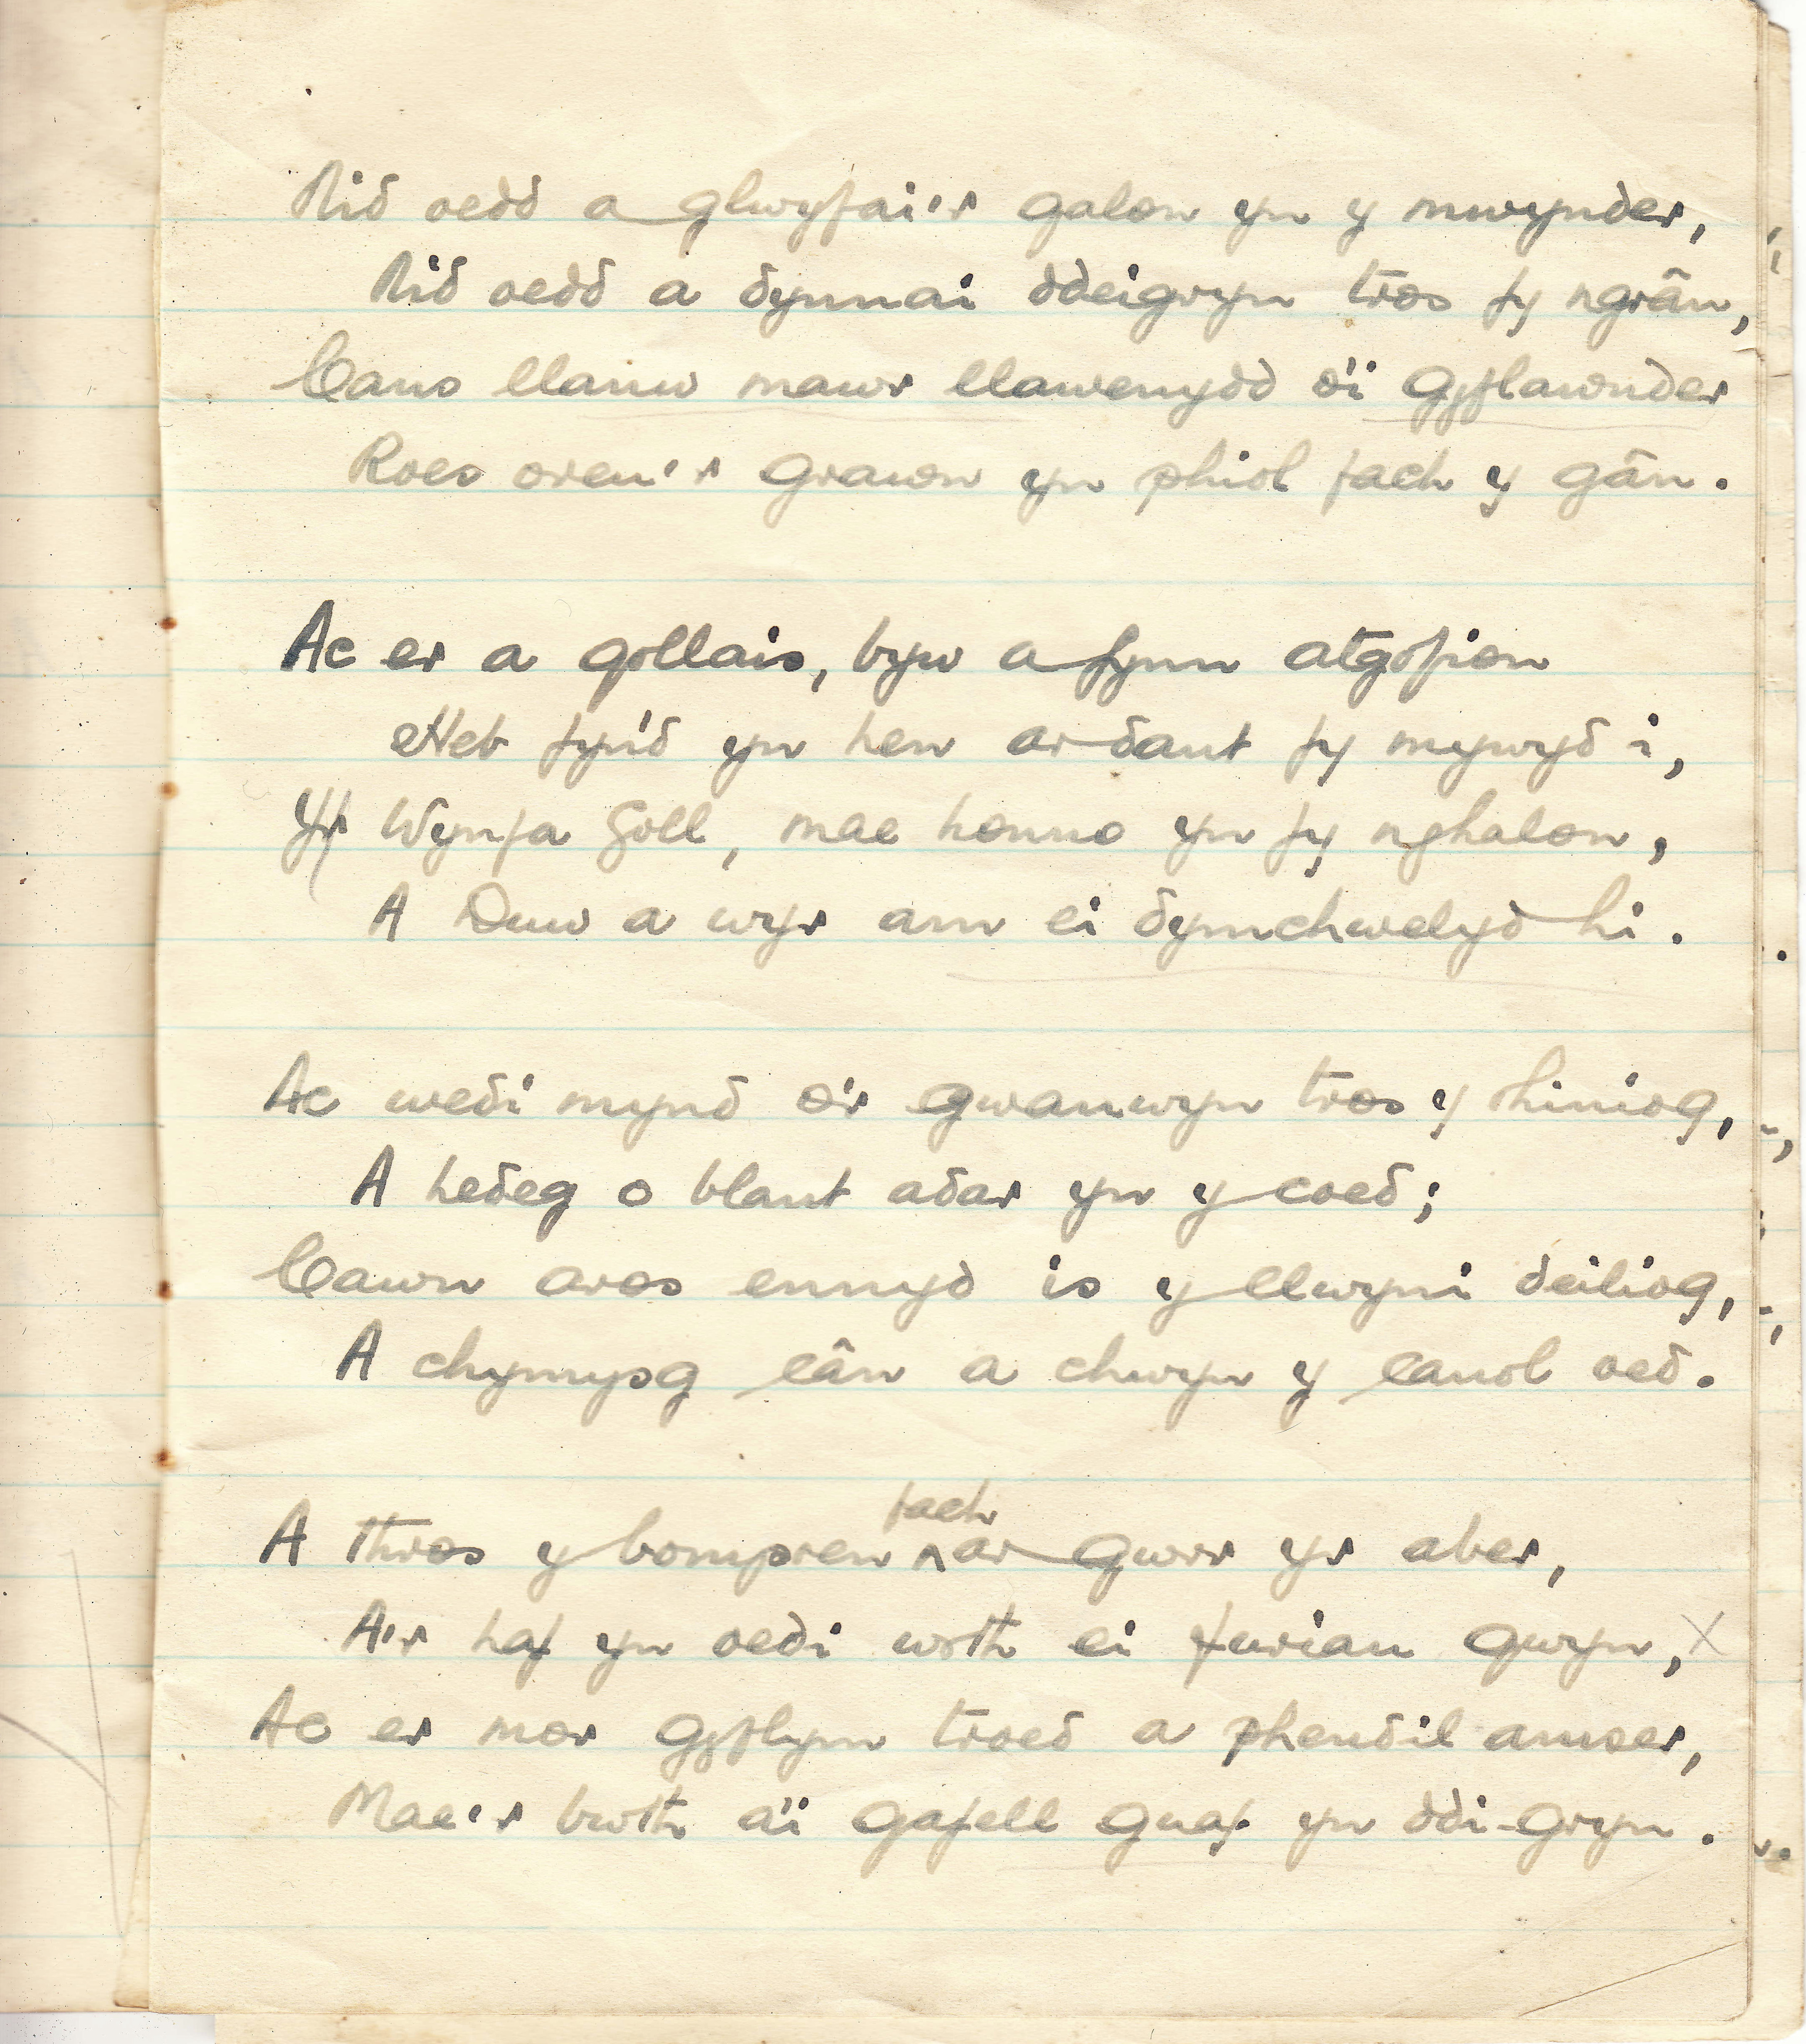 Nid oedd a glwyfai'r galon yn y mwynder,
Nid oedd a dynnai ddeigryn tros fy ngrân,
Cans llanw mawr llawenydd o'i gyflawnder
Roes oreu'r grawn yn phiol fach y gân.
Ac er a gollais, byw a fynn atgofion
Heb fyn'd yn hen ar dant fy mywyd i,
Yr Wynfa Goll, mae honno yn fy nghalon,
A Duw a wyr am ei dymchwelyd hi.
Ac wedi mynd o'r gwanwyn tros y rhiniog,
A hedeg o blant adar yn y coed;
Cawn aros ennyd is y llwyni deiliog,
A chymysg cân a chwyn y canol oed.
A thros y bompren fach ar gwrr yr aber,
A'r haf yn oedi wrth ei furiau gwyn, x
Ac er mor gyflym troed a phendil amser,
Mae'r bwth a'i gafell yn ddi-gryn.